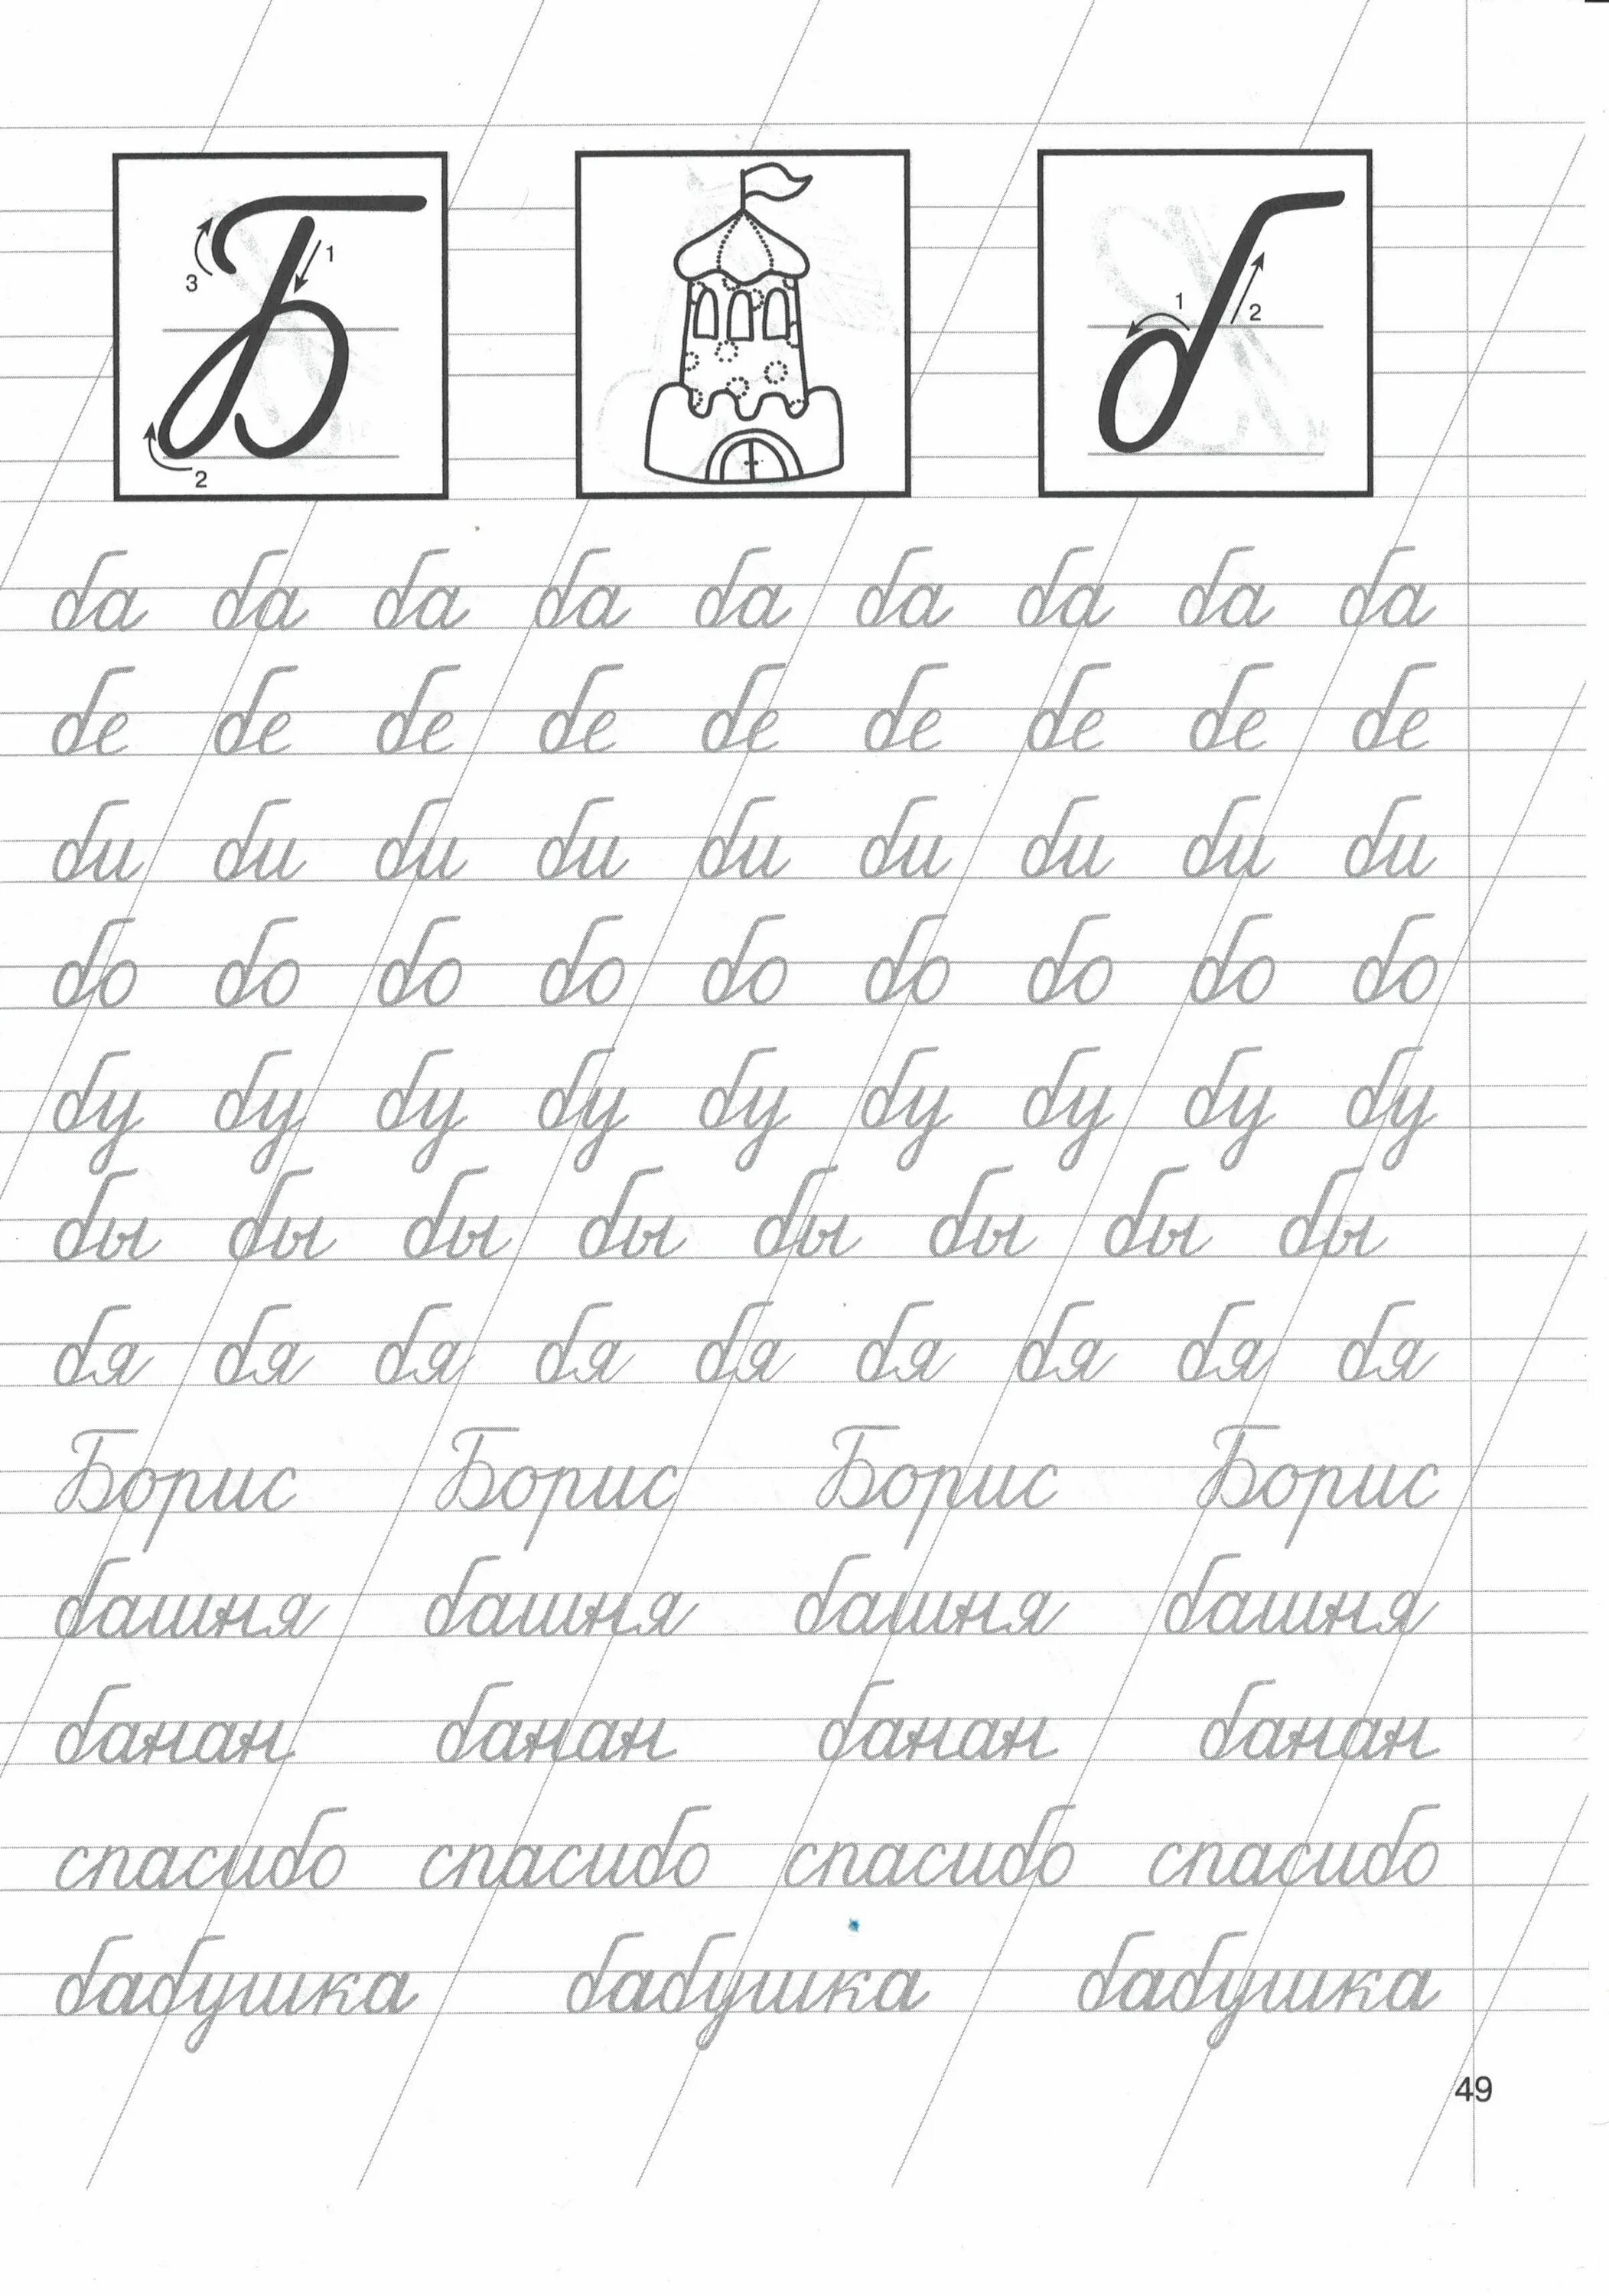 Б б
3 1 1 2
2
ба ба ба ба ба ба ба ба ба
бе бе бе бе бе бе бе бе бе
би би би би би би би би би
бо бо бо бо бо бо бо бо бо
бу бу бу бу бу бу бу бу бу
бы бы бы бы бы бы бы бы
бя бя бя бя бя бя бя бя бя
Борис Борис Борис Борис
башня башня башня башня
банан банан банан банан
спасибо спасибо спасибо спасибо
бабушка бабушка бабушка
49